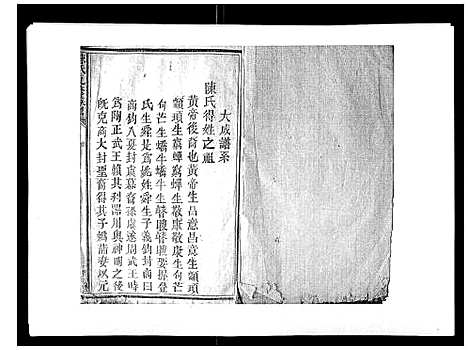 大成譜系
陳氏得姓之祖
黃帝後裔也黃帝生昌意昌意生顓頊
顓頊生窮蟬窮蟬生敬康敬康生句芒
句芒生蟜牛蟜牛生瞽瞍瞽瞍娶握登
氏生舜是爲姚姓舜生子義鈞封商曰
商鈞八夏封虞幕裔孫虞遂周武王時
爲陶正武王賴其利器用與神明之後
旣克商大封聖裔得其子嬀滿妻以元